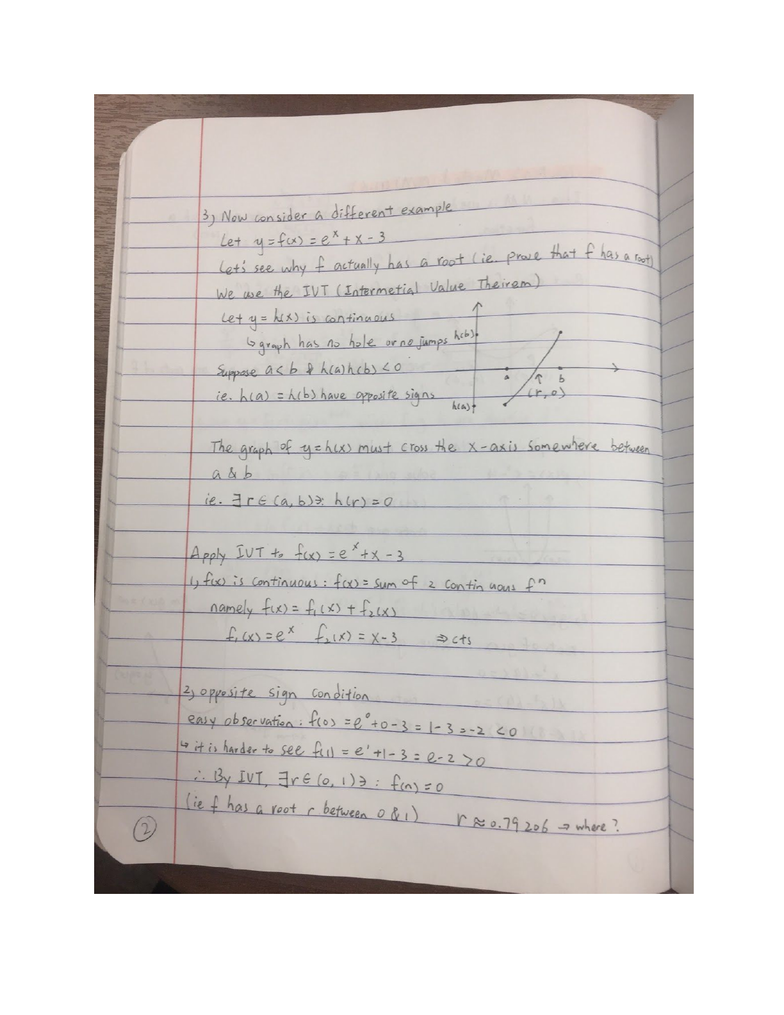 3) Now consider a different example
Let y = f(x) = e^x + x - 3
Let's see why f actually has a root (ie. prove that f has a root)
We use the IVT (Intermetial Value Theirem)
Let y = h(x) is continuous
↳ graph has no hole or no jumps
h(b)
Suppose a < b & h(a)h(b) < 0
a
b
(r, 0)
ie. h(a) = h(b) have opposite signs
h(a)
The graph of y = h(x) must cross the x-axis somewhere between
a & b
ie. ∃ r ∈ (a, b) ∋: h(r) = 0
Apply IVT to f(x) = e^x + x - 3
1) f(x) is continuous : f(x) = sum of 2 continuous f^n
namely f(x) = f₁(x) + f₂(x)
f₁(x) = e^x f₂(x) = x - 3 ⇒ cts
2) opposite sign condition
easy observation : f(0) = e^0 + 0 - 3 = 1 - 3 = -2 < 0
↳ it is harder to see f(1) = e^1 + 1 - 3 = e - 2 > 0
∴ By IVT, ∃ r ∈ (0, 1) ∋ : f(n) = 0
(ie f has a root r between 0 & 1) r ≈ 0.79206 → where?
2